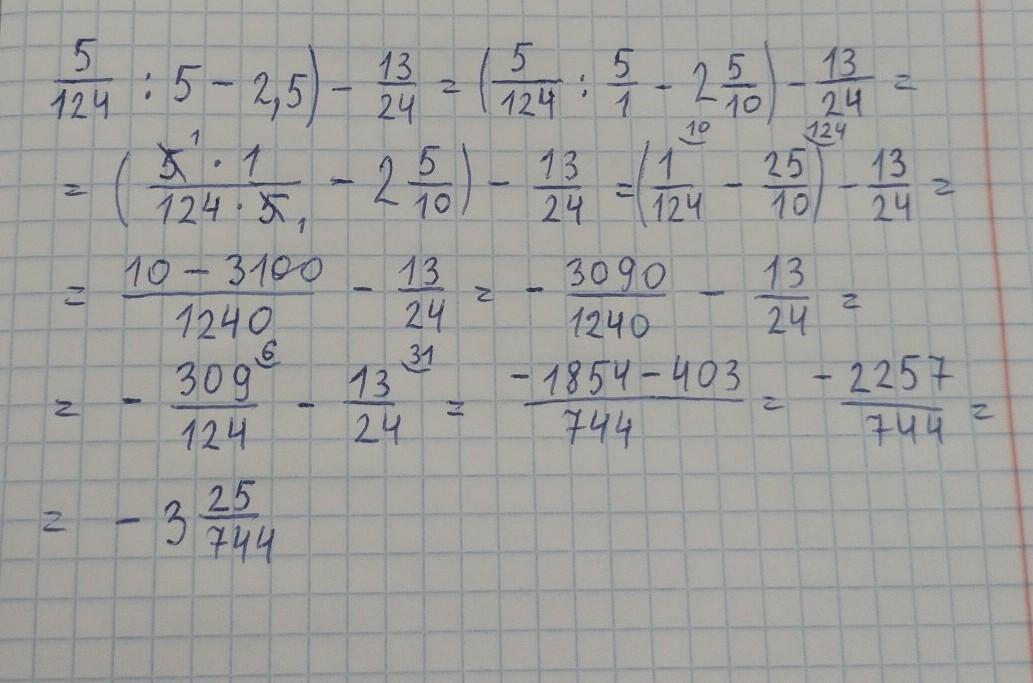 5/124 : 5 - 2,5) - 13/24 = (5/124 : 5/1 - 2 5/10) - 13/24 =
= (5¹ · 1/124 · 5₁ - 2 5/10) - 13/24 = (1/124 ¹⁰ - 25/10 ¹²⁴) - 13/24 =
= 10 - 3100/1240 - 13/24 = - 3090/1240 - 13/24 =
= - 309/124 ⁶ - 13/24 ³¹ = -1854 - 403/744 = -2257/744 =
= - 3 25/744